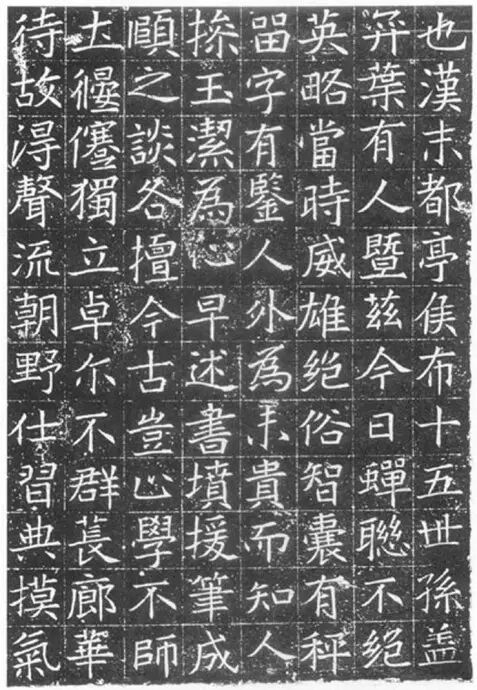 也漢末都亭侯布十五世孫蓋
弈葉有人暨茲今日蟬聯不絕
英略當時威雄絕俗智囊有秤
留字有鑒人外為貴而知人
操玉潔為心早述書墳援筆成
頤之談各擅今古豈心學不師
士偃蹇獨立卓尒不群萇廊華
待故得聲流朝野仕習典摸氣